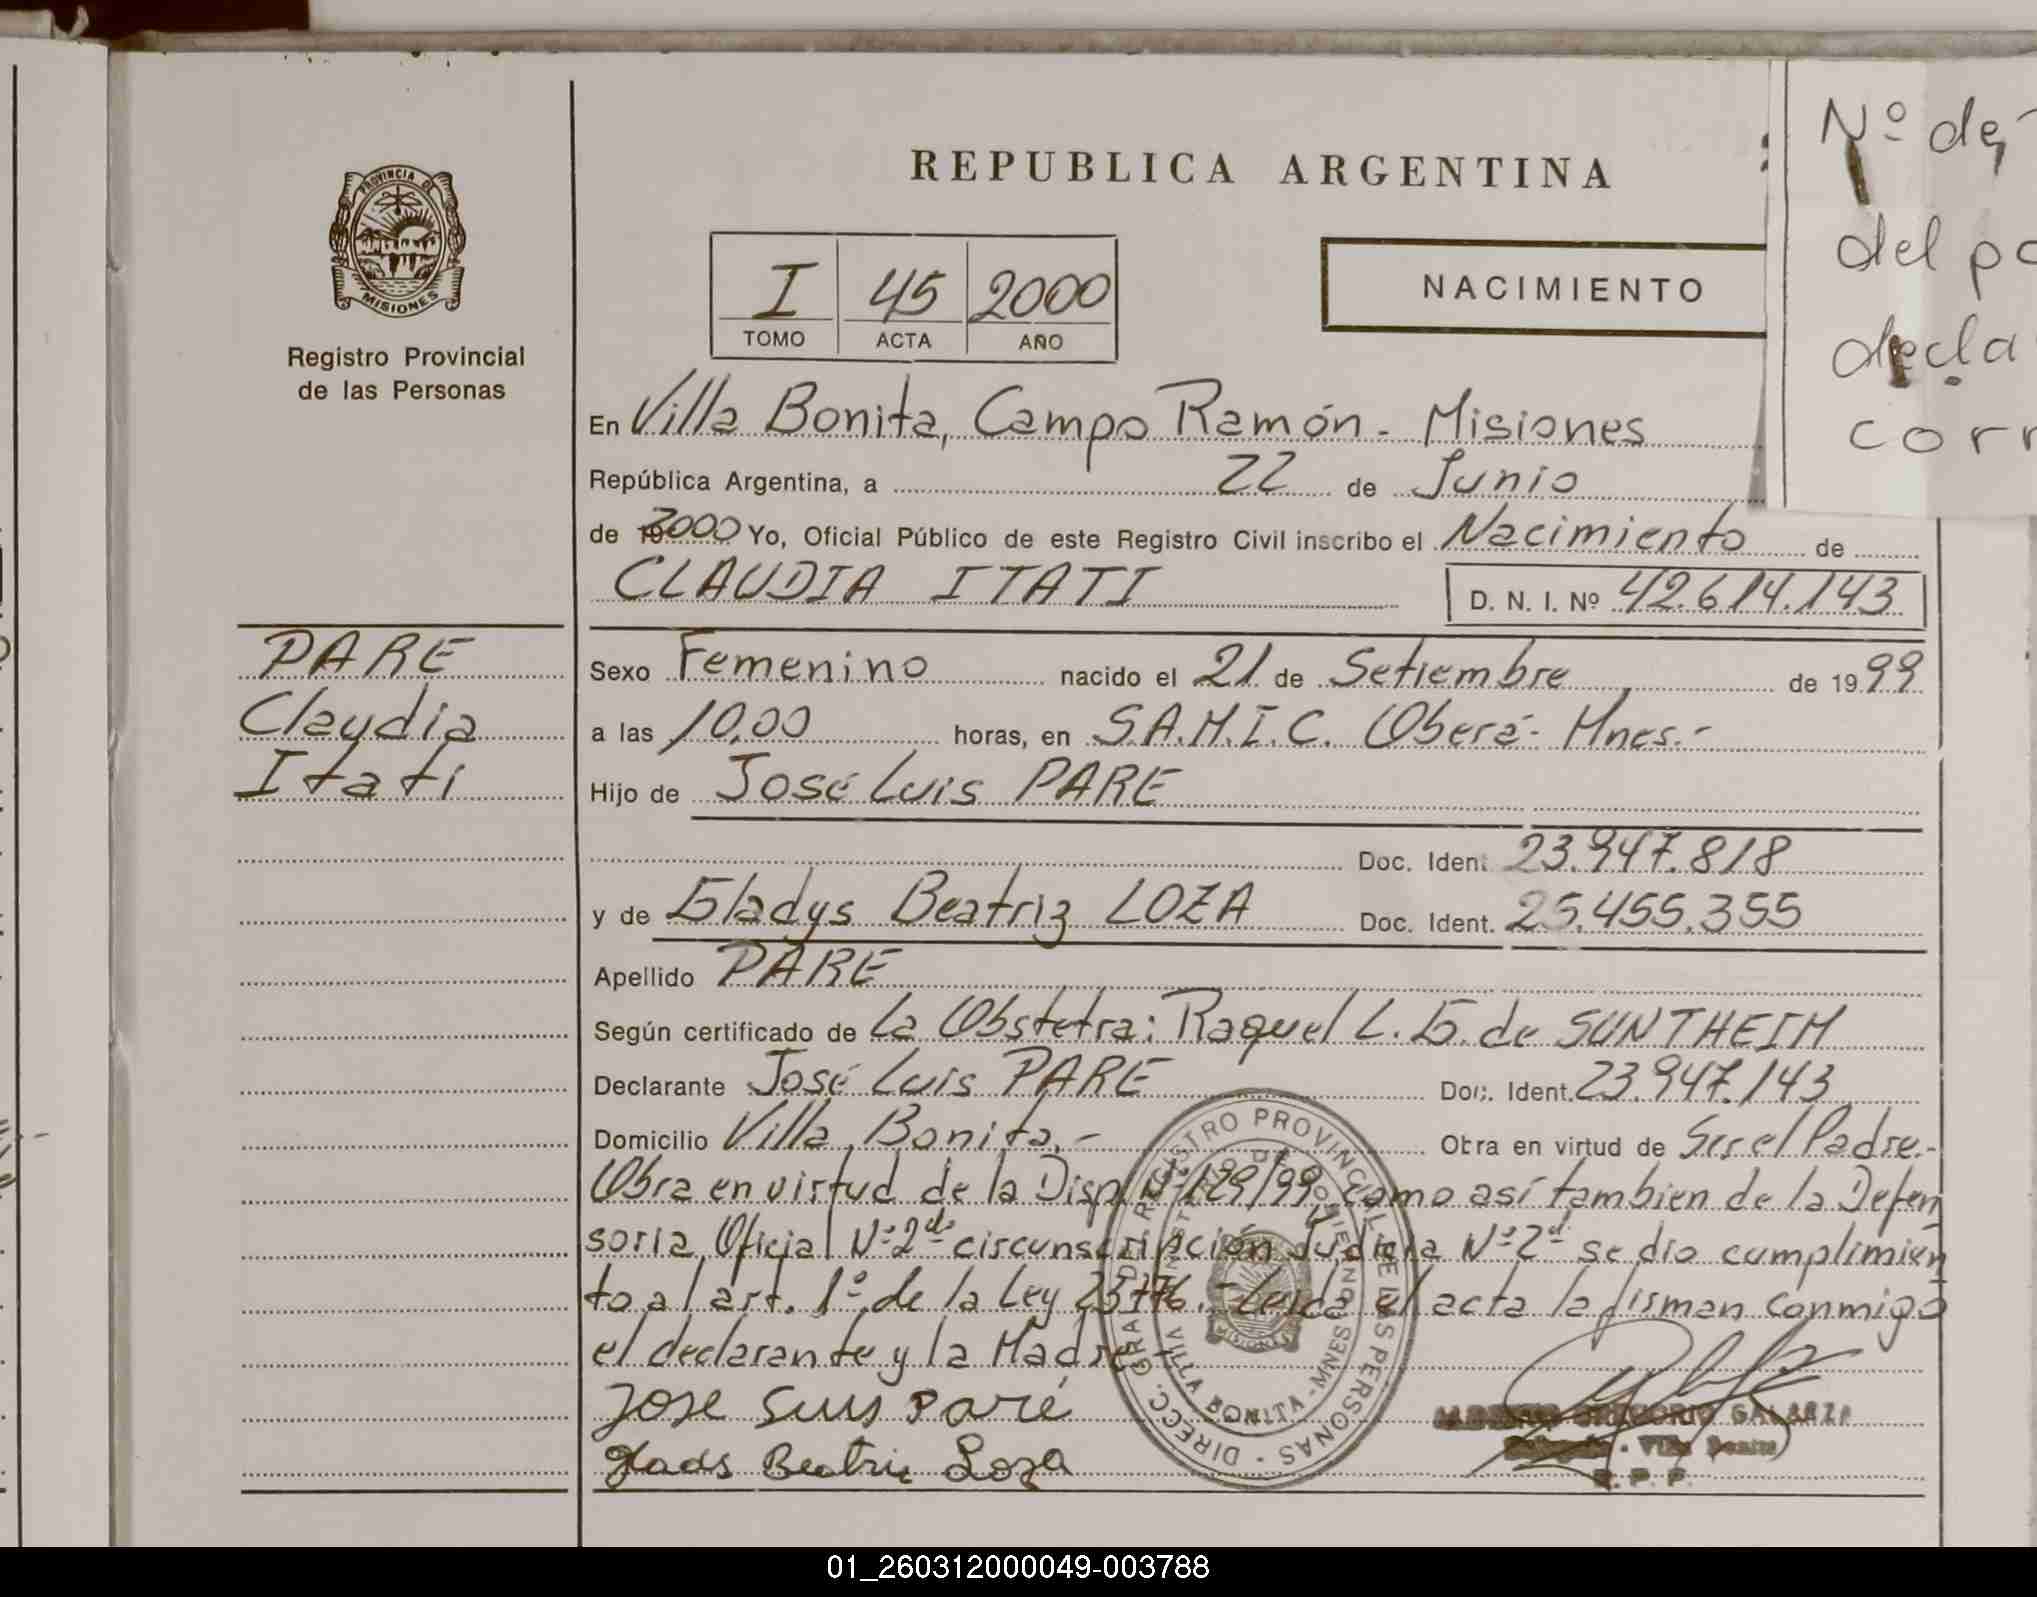 Nº de
del pa
decla
corr
REPUBLICA ARGENTINA
PROVINCIA DE MISIONES
Registro Provincial
de las Personas
I 45 2000
TOMO ACTA AÑO
NACIMIENTO
En Villa Bonita, Campo Ramón - Misiones
República Argentina, a 22 de Junio
de 2000 Yo, Oficial Público de este Registro Civil inscribo el Nacimiento de
CLAUDIA ITATI D. N. I. Nº 42.614.143
PARE
Claudia
Itatí
Sexo Femenino nacido el 21 de Setiembre de 1999
a las 10,00 horas, en S.A.M.I.C. Oberá - Mnes.-
Hijo de José Luis PARE
Doc. Ident. 23.947.818
y de Gladys Beatriz LOZA Doc. Ident. 25.455.355
Apellido PARE
Según certificado de La Obstetra: Raquel L. G. de SUNTHEIM
Declarante José Luis PARE Doc. Ident. 23.947.143
Domicilio Villa Bonita.- Obra en virtud de Ser el Padre.-
Obra en virtud de la Disp. Nº 129/99, como así tambien de la Defen
soria Oficial Nº 2 de circunscripción Judicia Nº 2 se dio cumplimien
to al art. 1º de la Ley - Leida el acta la firman conmigo
el declarante y la Madre
DIRECC. GRAL. DE REGISTRO PROVINCIAL DE LAS PERSONAS
MINISTERIO DE GOBIERNO
VILLA BONITA - MNES
MISIONES
Jose Luis Paré
Glads Beatriz Loza
GREGORIO GALARZA
Villa Bonita
R. P. P.
01_260312000049-003788